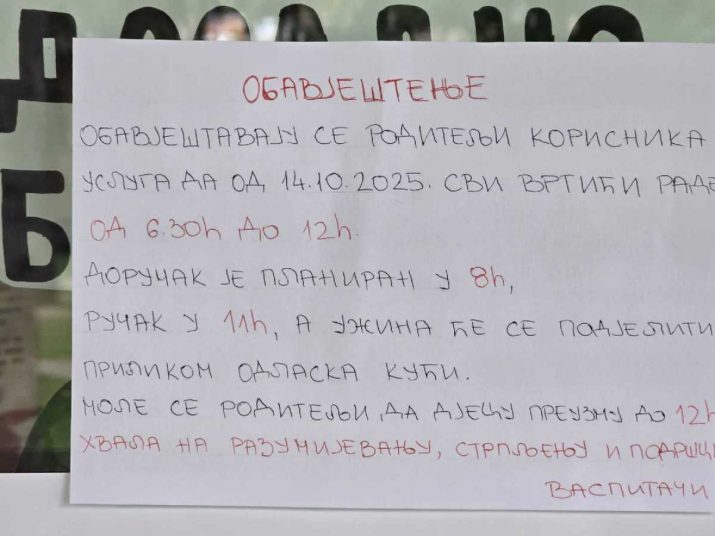 ОБАВЈЕШТЕЊЕ
ОБАВЈЕШТАВАЈУ СЕ РОДИТЕЉИ КОРИСНИКА
УСЛУГА ДА ОД 14.10.2025. СВИ ВРТИЋИ РАДЕ
ОД 6.30h ДО 12h.
ДОРУЧАК ЈЕ ПЛАНИРАН У 8h,
РУЧАК У 11h, А УЖИНА ЋЕ СЕ ПОДЈЕЛИТИ
ПРИЛИКОМ ОДЛАСКА КУЋИ.
МОЛЕ СЕ РОДИТЕЉИ, ДА ДЈЕЦУ ПРЕУЗМУ ДО 12h
ХВАЛА НА РАЗУМИЈЕВАЊУ, СТРПЉЕЊУ И ПОДРШЦИ
ВАСПИТАЧИ